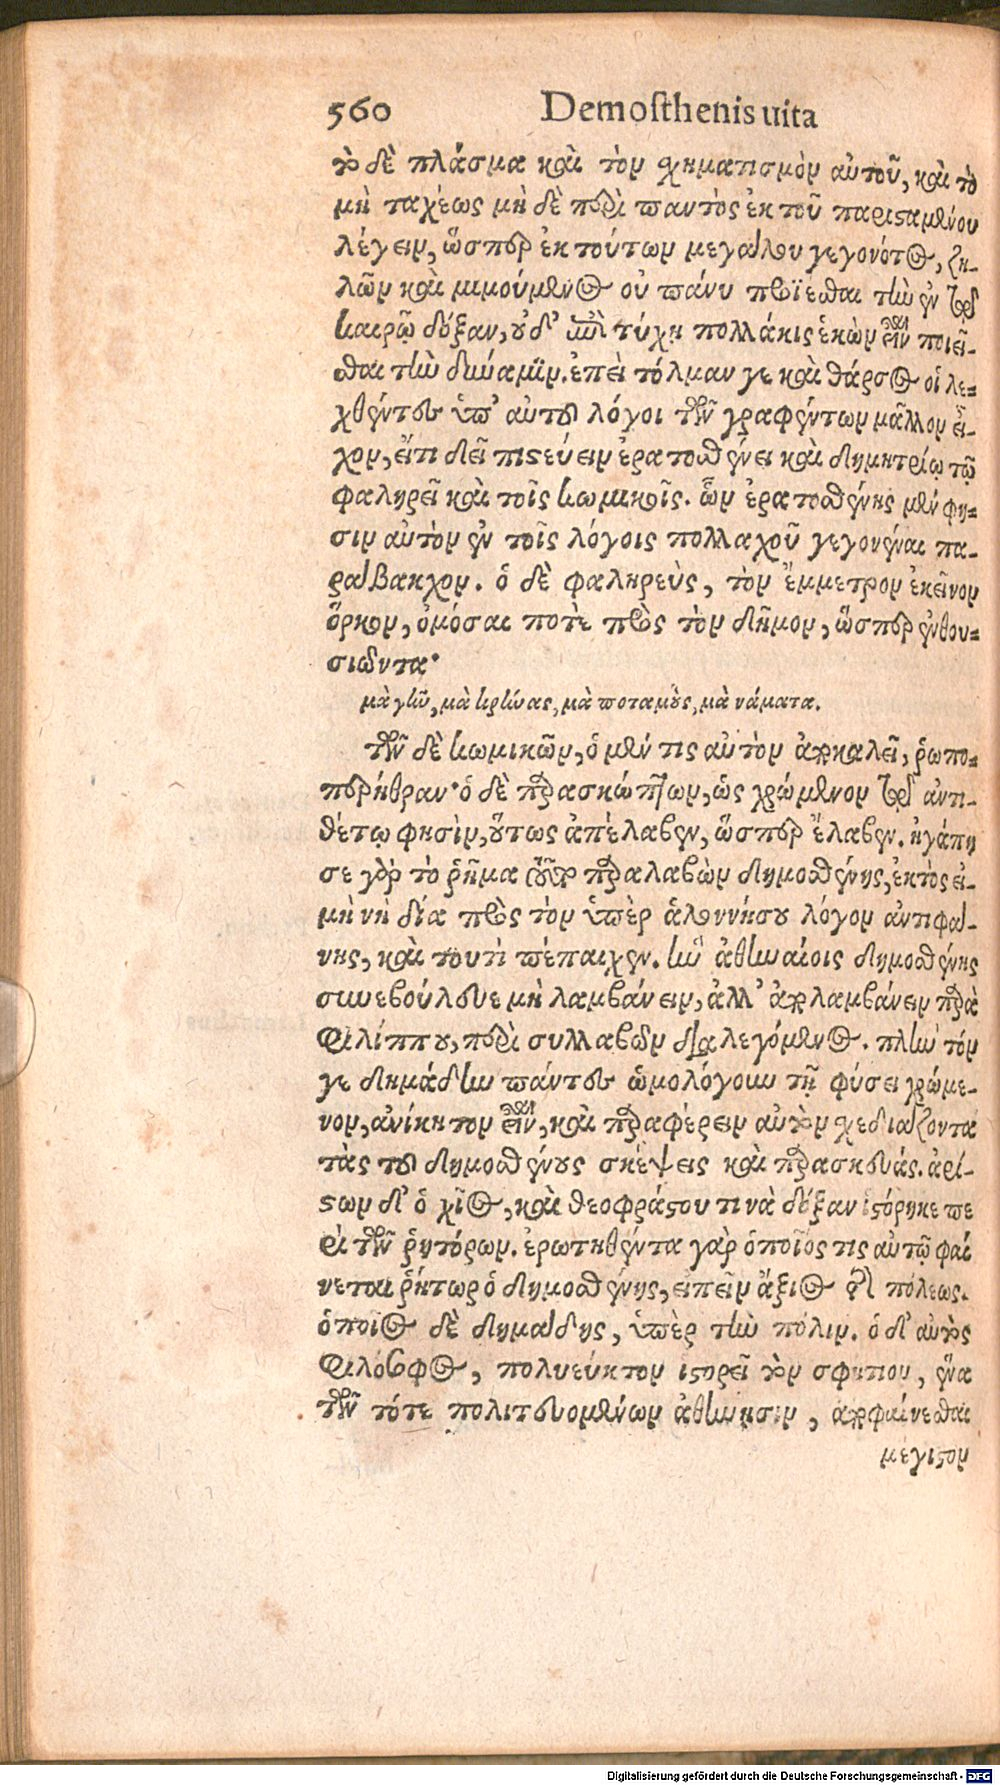 560 Demosthenis uita
τὸ δὲ πλάσμα καὶ τὸν σχηματισμὸν αὐτοῦ, καὶ τὸ
μὴ ταχέως μὴ δὲ περὶ παντὸς ἐκ τοῦ παρισαμένου
λέγειν, ὥσπερ ἐκ τούτων μεγάλου γεγονότος, ζη-
λῶν καὶ μιμούμενος οὐ πάνυ προΐεσθαι τὴν ἐν τῷ
καιρῷ δόξαν, οὐδ' ἐπὶ τύχῃ πολλάκις ἑκὼν εἶναι ποιεῖ-
σθαι τὴν δύναμϊν. ἐπεὶ τόλμαν γε καὶ θάρσος οἱ λε-
χθέντες ὑπ' αὐτοῦ λόγοι τῶν γραφέντων μᾶλλον εἶ-
χον, εἴτι δεῖ πιστεύειν ἐρατοσθένει καὶ δημητρίῳ τῷ
φαληρεῖ καὶ τοῖς κωμικοῖς. ὧν ἐρατοσθένης μέν φη-
σιν αὐτὸν ἐν τοῖς λόγοις πολλαχοῦ γεγονέναι πα-
ράβακχον. ὁ δὲ φαληρεὺς, τὸν ἔμμετρον ἐκεῖνον
ὅρκον, ὀμόσαι ποτὲ πρὸς τὸν δῆμον, ὥσπερ ἐνθου-
σιῶντα·
μὰ γῆν, μὰ κρήνας, μὰ ποταμοὺς, μὰ νάματα.
τῶν δὲ κωμικῶν, ὁ μέν τις αὐτὸν ἀποκαλεῖ, ῥωπο-
περήθραν· ὁ δὲ παρασκώπτων, ὡς χρώμενον τῷ ἀντι-
θέτῳ φησὶν, οὕτως ἀπέλαβεν, ὥσπερ ἔλαβεν. ἠγάπη
σε γὰρ τὸ ῥῆμα τοῦτο παραλαβὼν δημοσθένης, ἐκτὸς εἰ-
μὴ νὴ δία πρὸς τὸν ὑπὲρ ἁλοννήσου λόγον ἀντιφά-
νης, καὶ τουτὶ πέπαιχεν. ἣν ἀθηναίοις δημοσθένης
συνεβούλευε μὴ λαμβάνειν, ἀλλ' ἀπολαμβάνειν παρὰ
φιλίππου, περὶ συλλαβῶν διαλεγόμενος. πλὴν τόν
γε δημάδην πάντες ὡμολόγουν τῇ φύσει χρώμε-
νον, ἀνίκητον εἶναι, καὶ παραφέρειν αὐτὸν σχεδιάζοντα
τὰς τοῦ δημοσθένους σκέψεις καὶ παρασκευάς. ἀρί-
στων δ' ὁ χῖος, καὶ θεοφράστου τινὰ δόξαν ἱστόρηκε πε
ρὶ τῶν ῥητόρων. ἐρωτηθέντα γὰρ ὁποῖος τις αὐτῷ φαί
νεται ῥήτωρ ὁ δημοσθένης, εἰπεῖν ἄξιος τῆς πόλεως.
ὁποῖος δὲ δημάδης, ὑπὲρ τὴν πόλιν. ὁ δ' αὐτὸς
φιλόσοφος, πολυεύκτον ἱστορεῖ τὸν σφήττιον, ἕνα
τῶν τότε πολιτευομένων ἀθήνησιν, ἀποφαίνεσθαι
μέγιστον
Digitalisierung gefördert durch die Deutsche Forschungsgemeinschaft - DFG